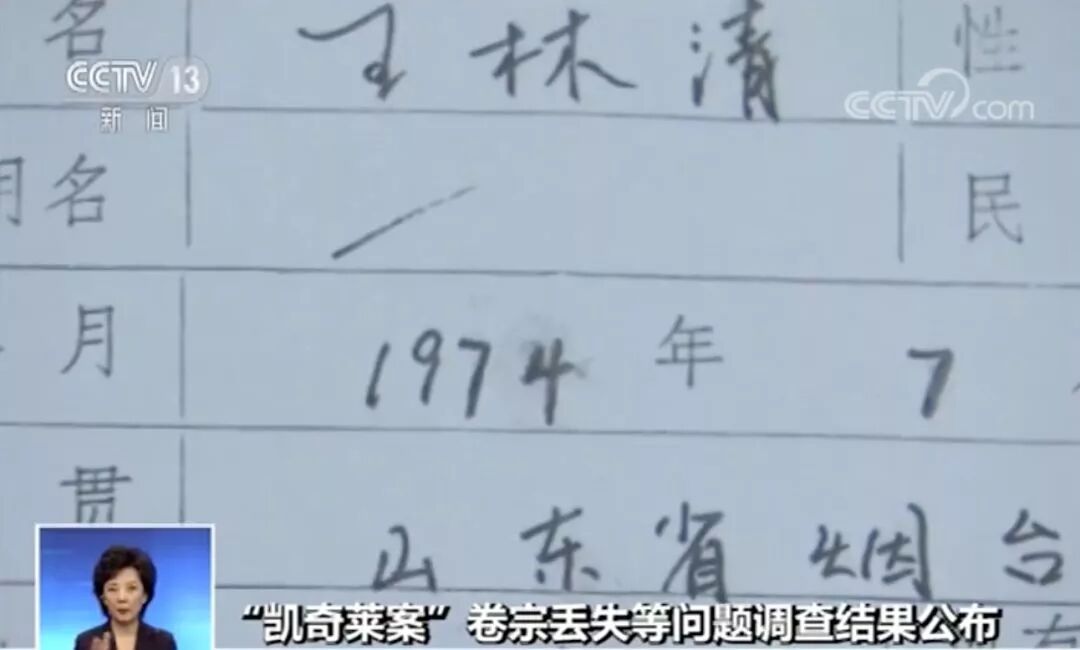 名 王林清 性
CCTV 13
新闻
CCTV.com
用名 / 民
月 1974 年 7
贯 山东省烟台
“凯奇莱案”卷宗丢失等问题调查结果公布